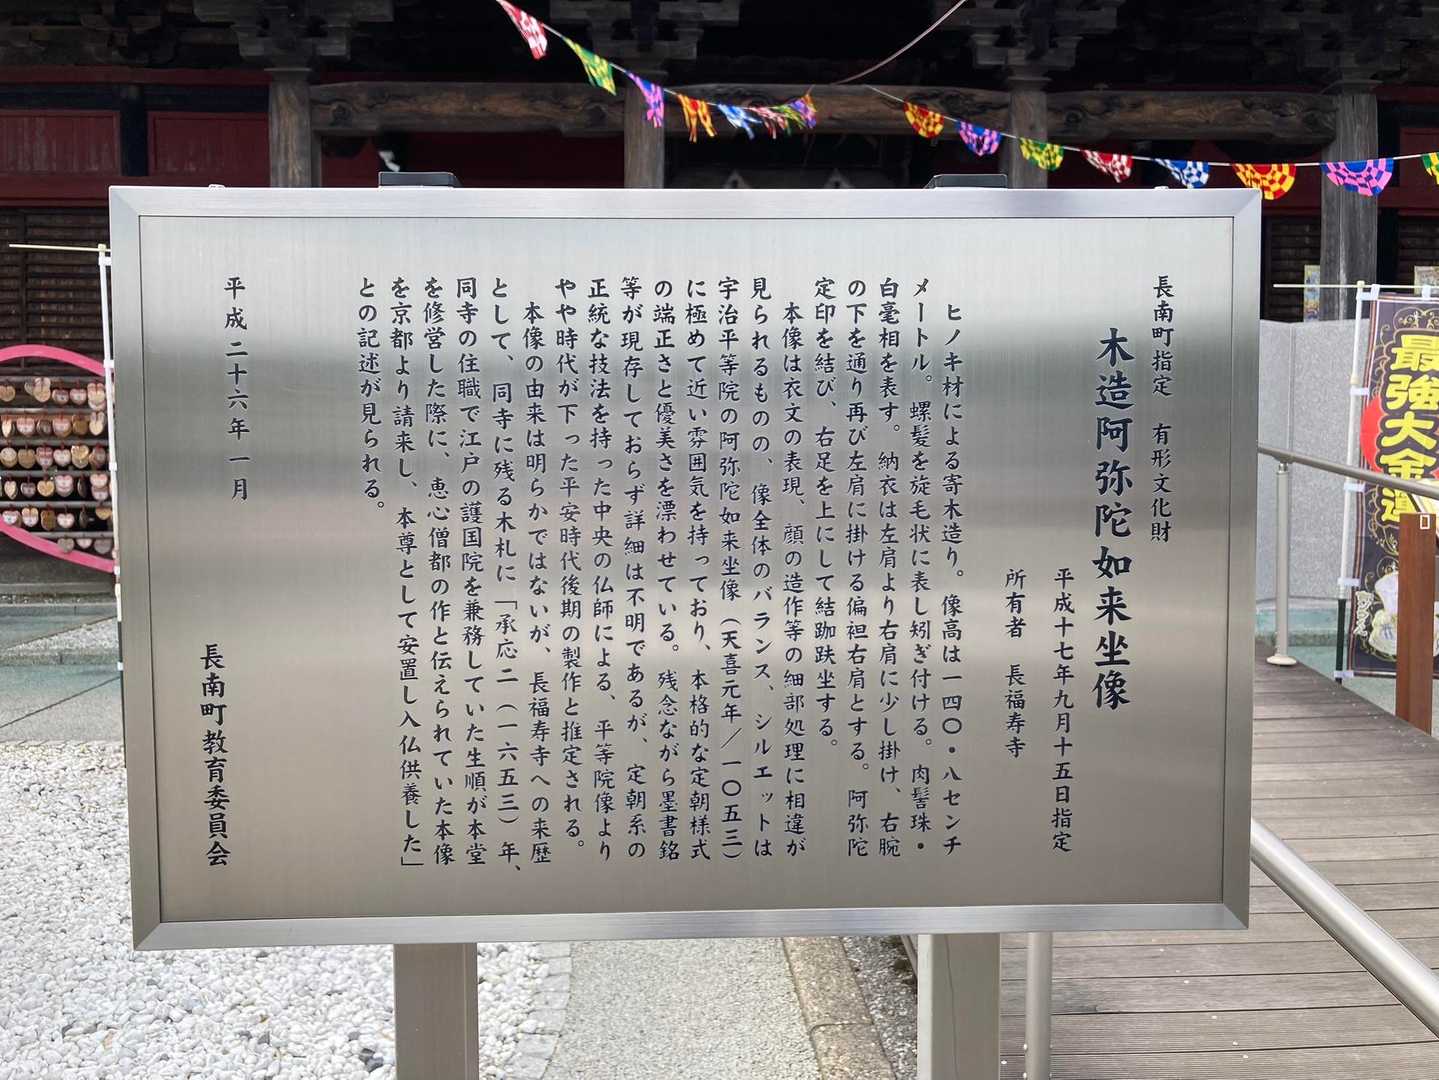 長南町指定　有形文化財
木造阿弥陀如来坐像
平成十七年九月十五日指定
所有者　長福寿寺
ヒノキ材による寄木造り。像高は一四〇・八センチ
メートル。螺髪を旋毛状に表し矧ぎ付ける。肉髻珠・
白毫相を表す。納衣は左肩より右肩に少し掛け、右腕
の下を通り再び左肩に掛ける偏袒右肩とする。阿弥陀
定印を結び、右足を上にして結跏趺坐する。
本像は衣文の表現、顔の造作等の細部処理に相違が
見られるものの、像全体のバランス、シルエットは
宇治平等院の阿弥陀如来坐像（天喜元年／一〇五三）
に極めて近い雰囲気を持っており、本格的な定朝様式
の端正さと優美さを漂わせている。残念ながら墨書銘
等が現存しておらず詳細は不明であるが、定朝系の
正統な技法を持った中央の仏師による、平等院像より
やや時代が下った平安時代後期の製作と推定される。
本像の由来は明らかではないが、長福寿寺への来歴
として、同寺に残る木札に「承応二（一六五三）年、
同寺の住職で江戸の護国院を兼務していた生順が本堂
を修営した際に、恵心僧都の作と伝えられていた本像
を京都より請来し、本尊として安置し入仏供養した」
との記述が見られる。
平成二十六年一月
長南町教育委員会
最強大金運